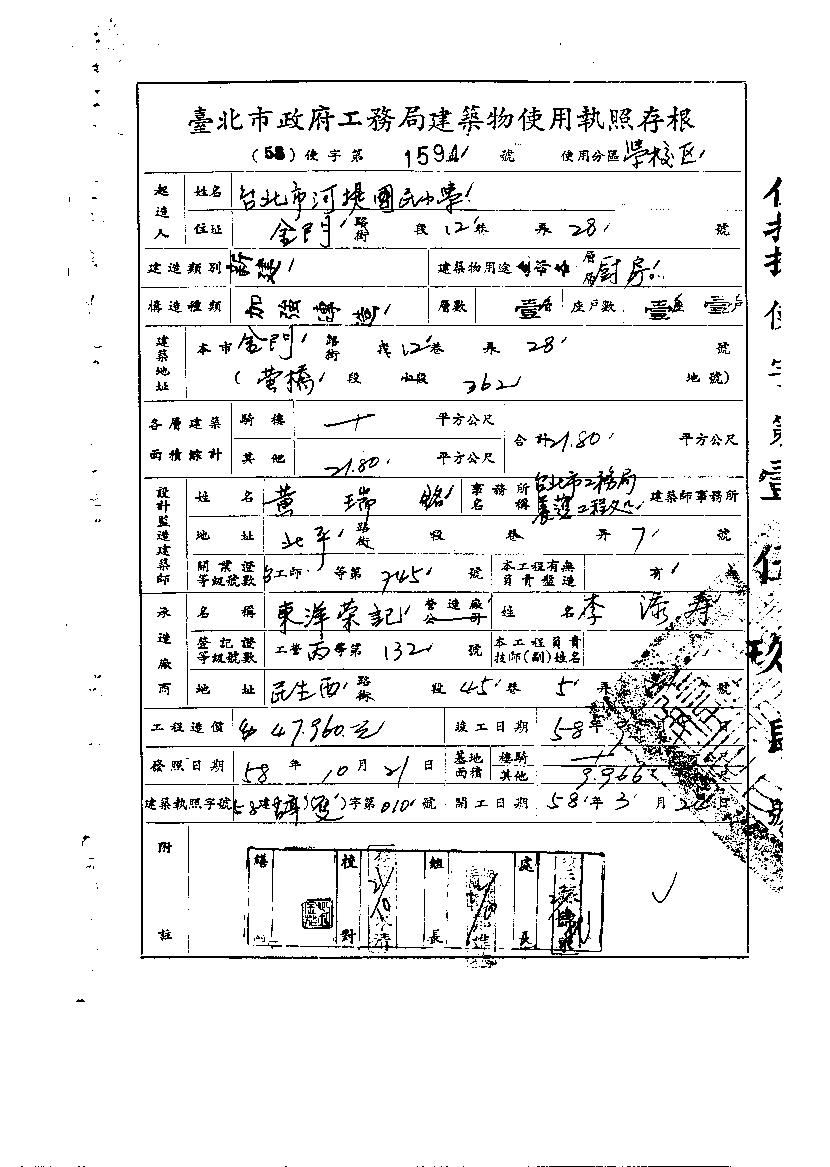 臺北市政府工務局建築物使用執照存根
(58) 使字第 1594 號 使用分區 學校區
起造人 姓名 台北市河堤國民小學
住址 金門 路街 段 12 巷 弄 28 號
建造類別 新建 建築物用途 層層 厨房
構造種類 加強磚造 層數 壹層 座戶數 壹座 壹戶
建築地址 本市 金門 路街 段 12 巷 弄 28 號
(螢橋 段 小段 362 地號)
各層建築面積綜計 騎樓 平方公尺 合計 21.80 平方公尺
其他 21.80 平方公尺
設計監造建築師 姓名 黃瑞銘 事務所名稱 台北市工務局養護工程處 建築師事務所
地址 北平 路街 段 巷 弄 7 號
開業證等級號數 工師 等第 745 號 本工程有無負責監造 有 無
承造廠商 名稱 東洋榮記 營造廠公司 姓名 李添壽
登記證等級號數 工營丙等第 132 號 本工程負責技師(副)姓名
地址 民生西 路街 段 45 巷 5 弄 號
工程造價 47.960.元 竣工日期 58 年 日
發照日期 58 年 10 月 21 日 基地面積 樓騎 其他
建築執照字號 58 建 字第 010 號 開工日期 58 年 3 月 日
附註 繕 校對 組長 處長